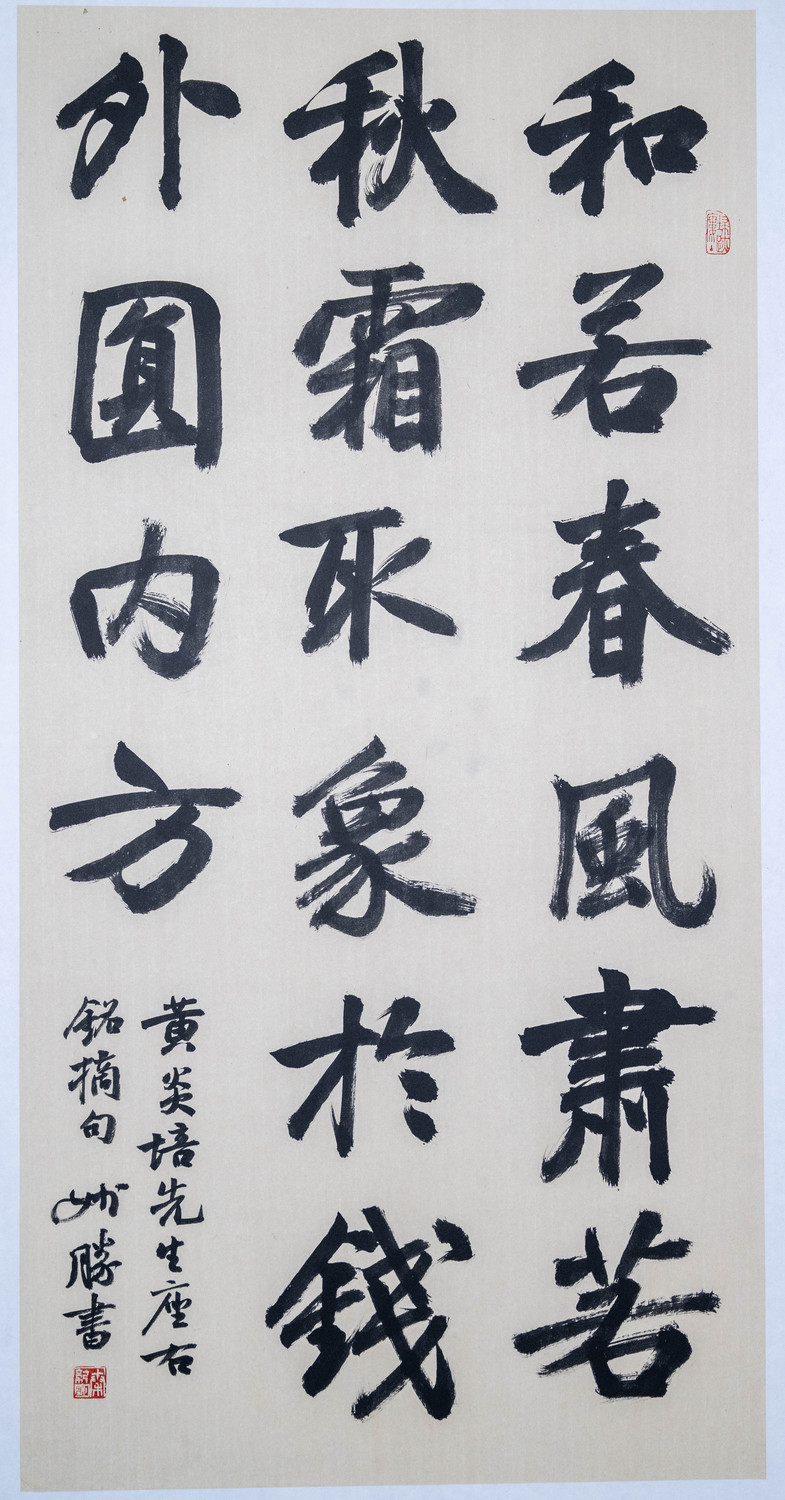 和若春風肅若
秋霜取象於錢
外圓内方
黄炎培先生座右
銘摘句
勝書